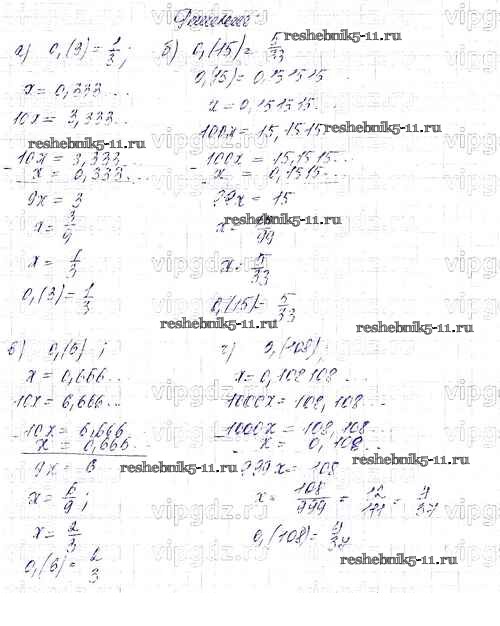 Решение:
а) 0,(3) = 1/3;
x = 0,333...
10x = 3,333...
10x = 3,333...
- x = 0,333...
9x = 3
x = 3/9
x = 1/3
0,(3) = 1/3
б) 0,(15) = 5/33
0,(15) = 0,151515...
x = 0,151515...
100x = 15,1515
100x = 15,1515...
- x = 0,1515...
99x = 15
x = 15/99
x = 5/33
0,(15) = 5/33
в) 0,(6);
x = 0,666...
10x = 6,666...
10x = 6,666...
- x = 0,666...
9x = 6
x = 6/9;
x = 2/3
0,(6) = 2/3
г) 0,(108);
x = 0,108108...
1000x = 108,108...
1000x = 108,108...
- x = 0,108...
999x = 108
x = 108/999 = 12/111 = 4/37
0,(108) = 4/37
reshebnik5-11.ru
reshebnik5-11.ru
reshebnik5-11.ru
reshebnik5-11.ru
reshebnik5-11.ru
reshebnik5-11.ru
reshebnik5-11.ru
reshebnik5-11.ru